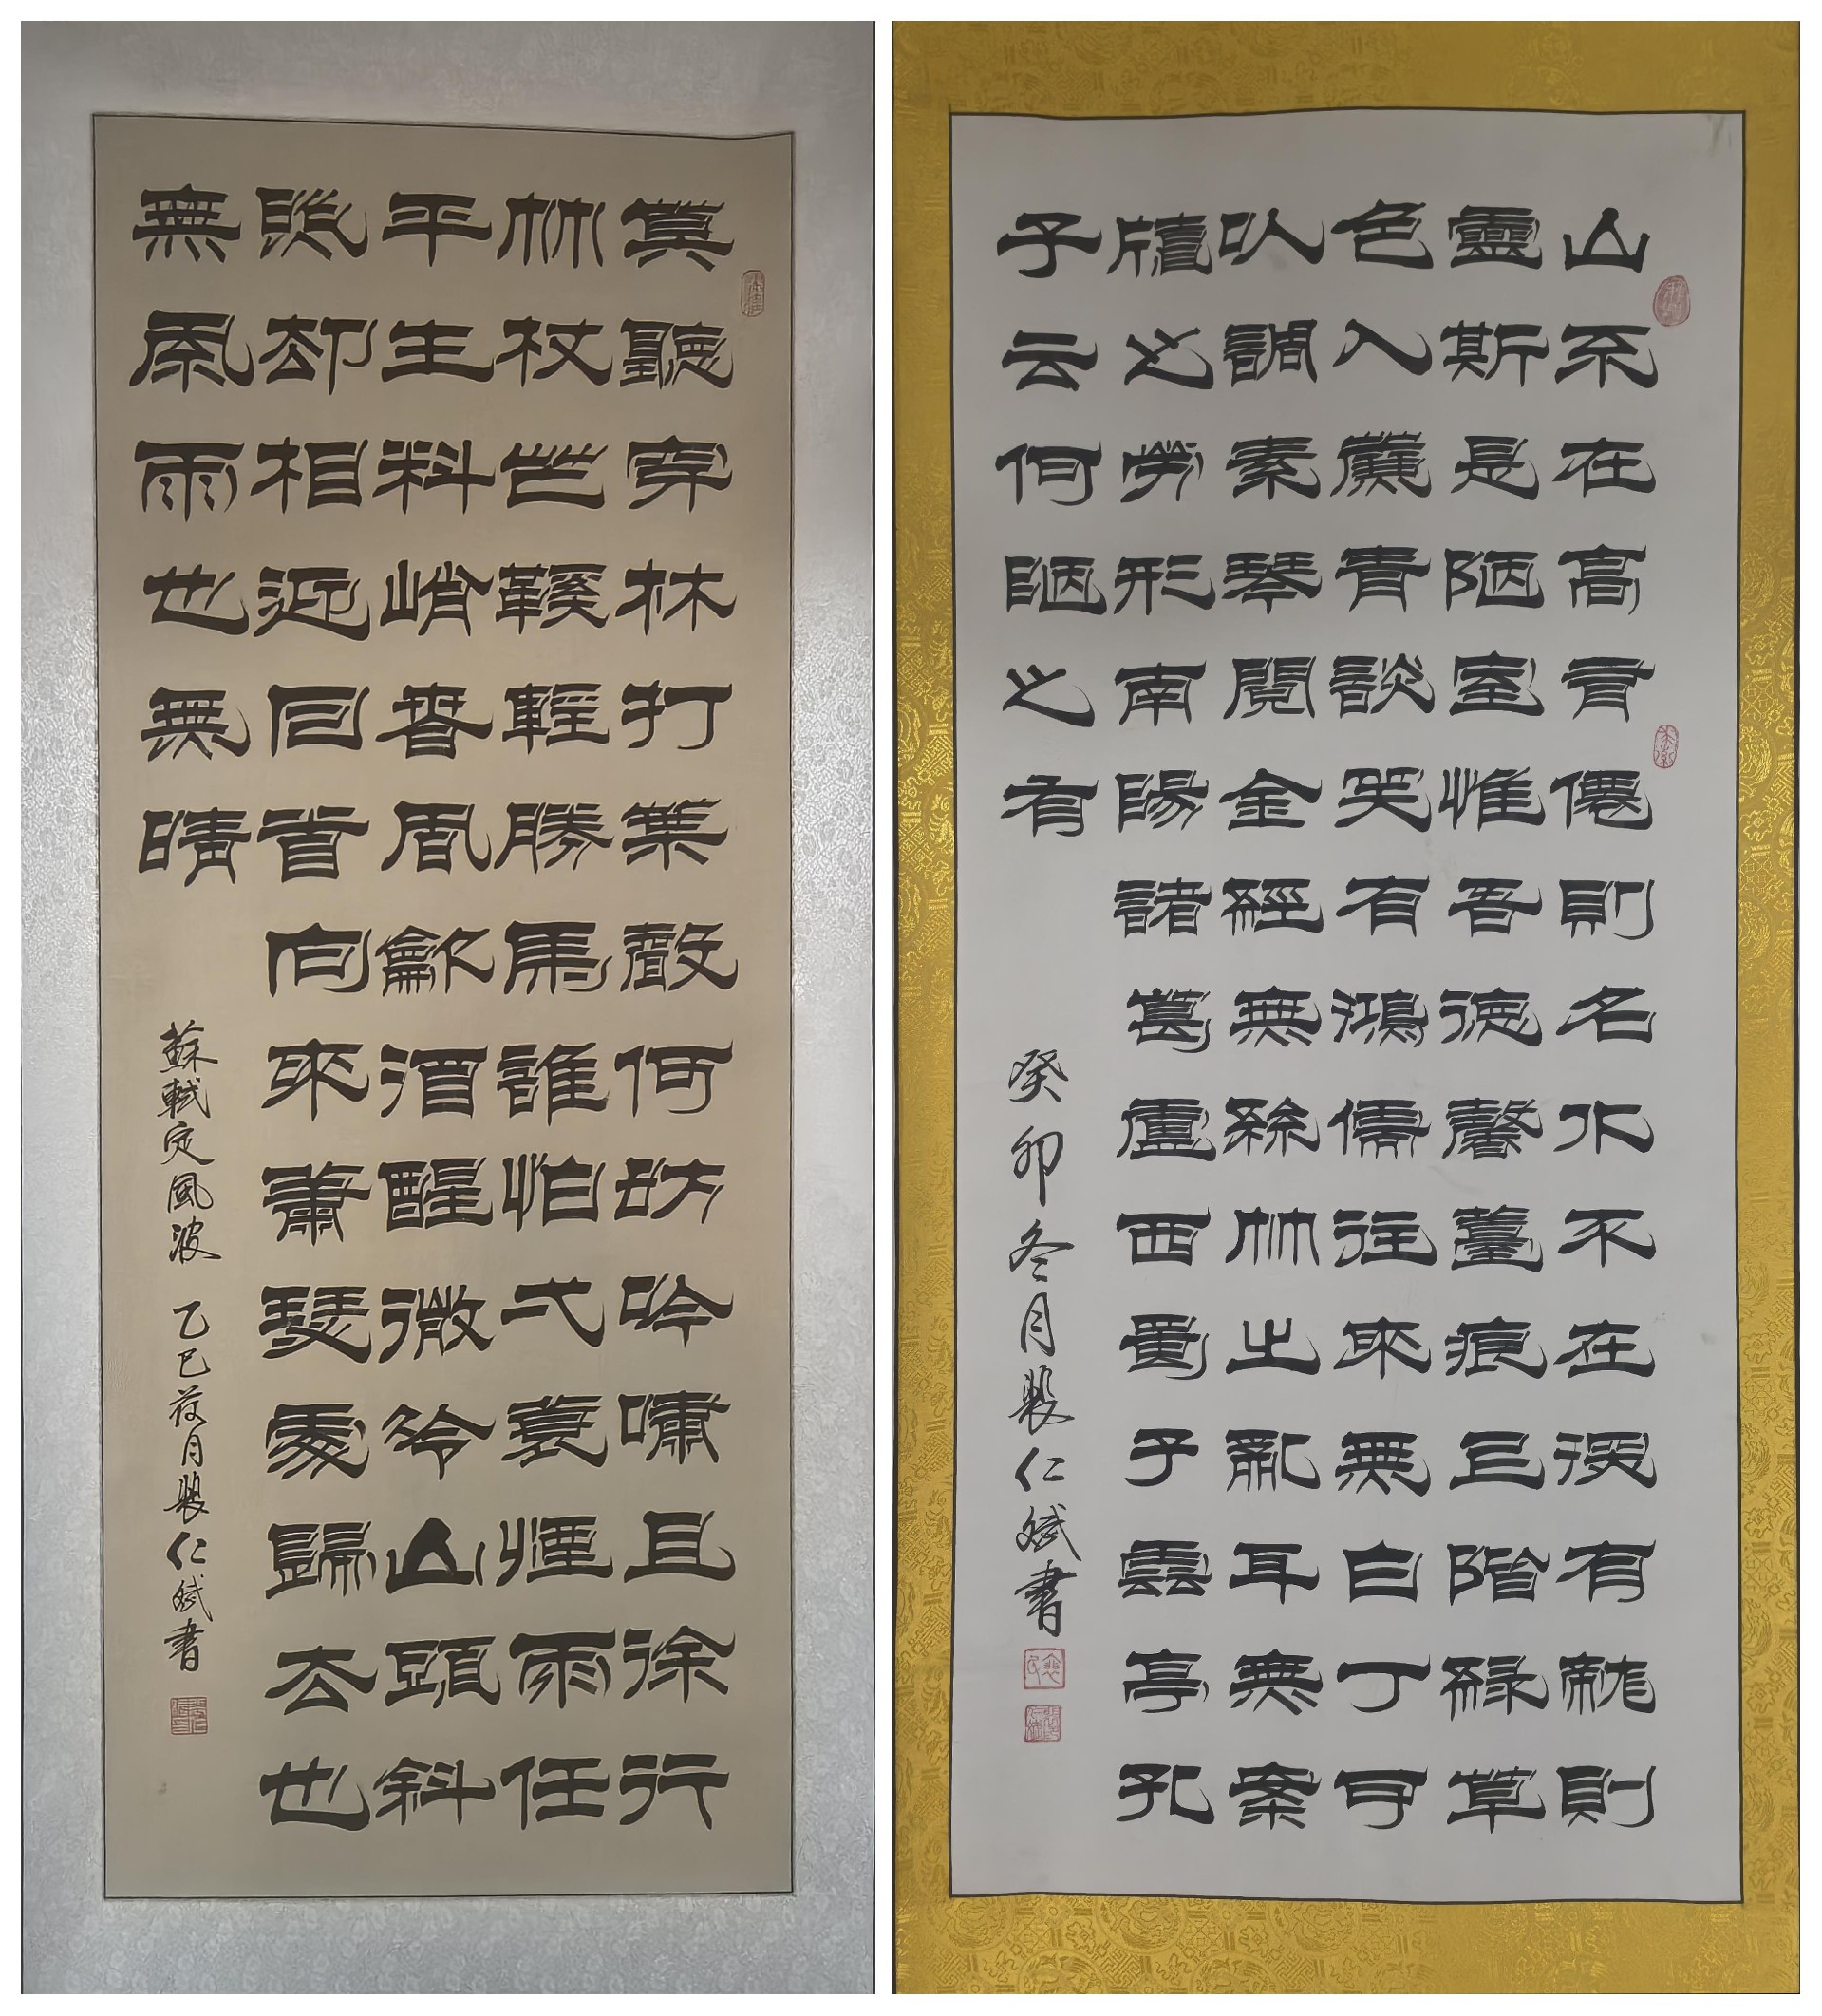 莫聽穿林打葉聲何妨吟嘯且徐行
竹杖芒鞵輕勝馬誰怕弌蓑煙雨任
平生料峭春風龡酒醒微冷山頭斜
照却相迎回首向來蕭瑟處歸去也
無風雨也無晴
蘇軾定風波 乙巳荷月裴仁斌書
山不在高有僊則名水不在深有龍則
靈斯是陋室惟吾德馨薹痕上階緑草
色入簾青談笑有鴻儒往來無白丁可
以調素琴閱金經無絲竹之亂耳無案
牘之勞形南陽諸葛廬西蜀子雲亭孔
子云何陋之有
癸卯冬月裴仁斌書